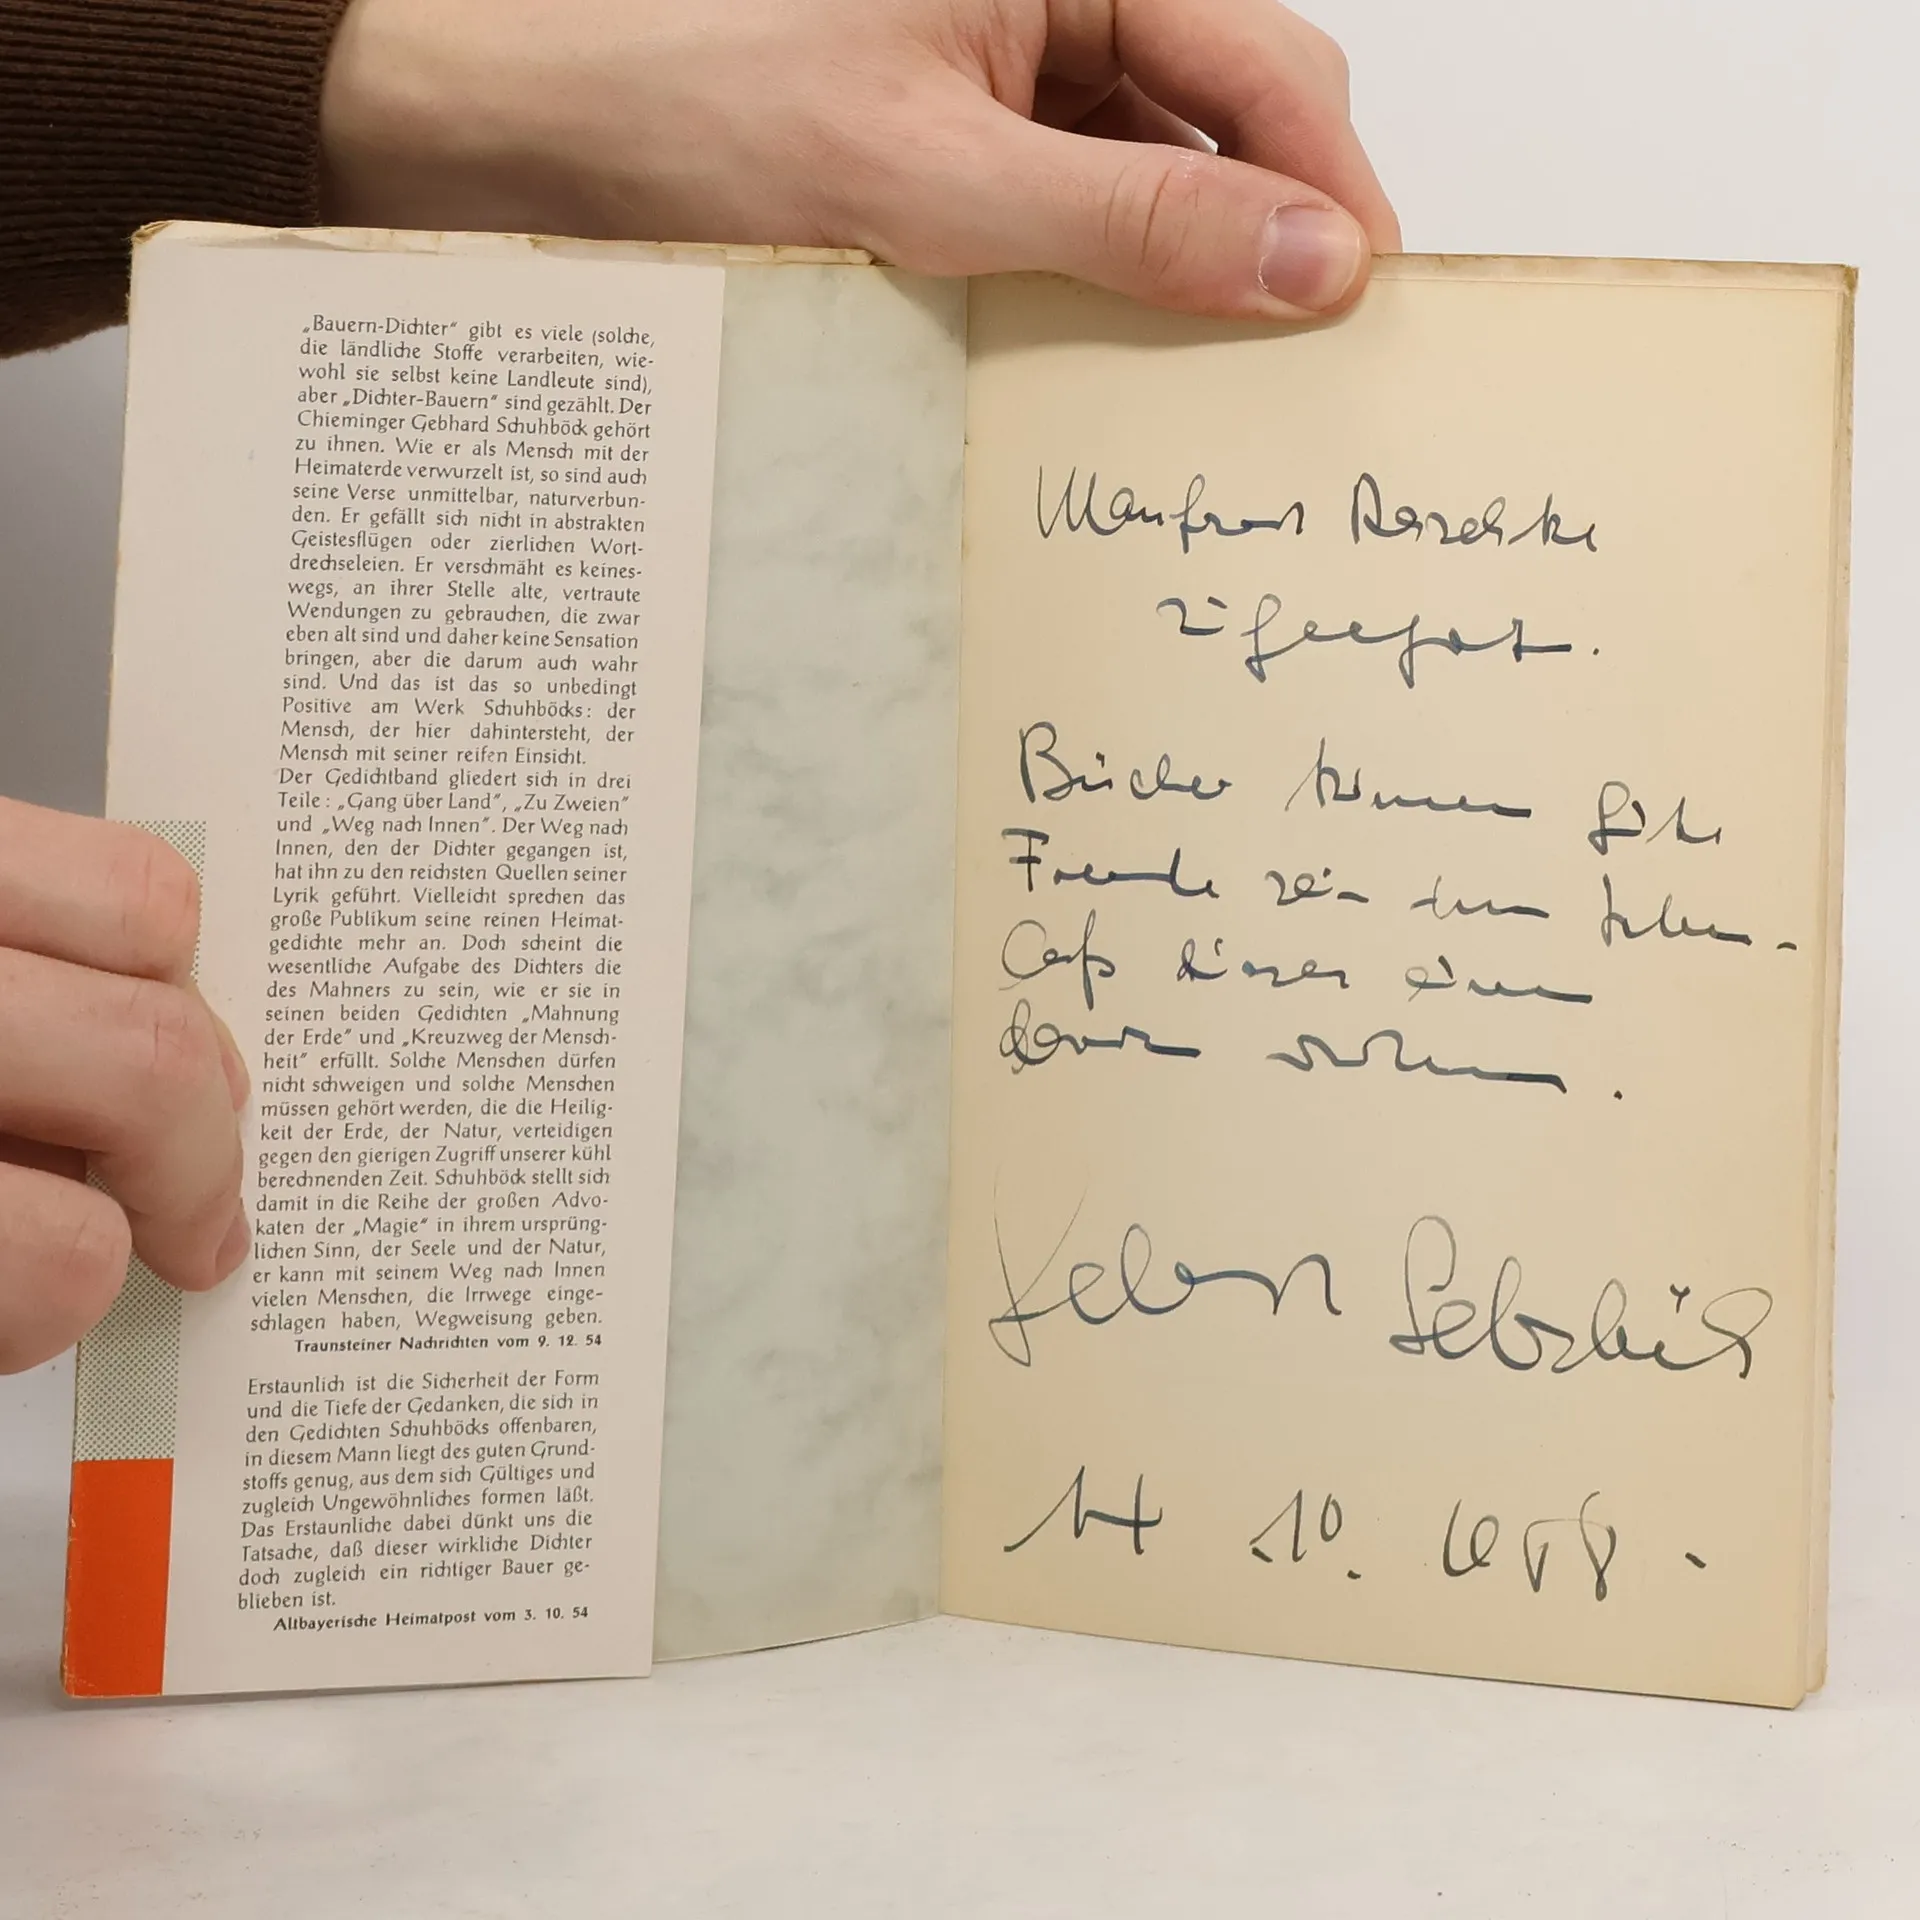 „Bauern-Dichter" gibt es viele (solche,
die ländliche Stoffe verarbeiten, wie-
wohl sie selbst keine Landleute sind),
aber „Dichter-Bauern" sind gezählt. Der
Chieminger Gebhard Schuhböck gehört
zu ihnen. Wie er als Mensch mit der
Heimaterde verwurzelt ist, so sind auch
seine Verse unmittelbar, naturverbun-
den. Er gefällt sich nicht in abstrakten
Geistesflügen oder zierlichen Wort-
drechseleien. Er verschmäht es keines-
wegs, an ihrer Stelle alte, vertraute
Wendungen zu gebrauchen, die zwar
eben alt sind und daher keine Sensation
bringen, aber die darum auch wahr
sind. Und das ist das so unbedingt
Positive am Werk Schuhböcks: der
Mensch, der hier dahintersteht, der
Mensch mit seiner reifen Einsicht.
Der Gedichtband gliedert sich in drei
Teile: „Gang über Land", „Zu Zweien"
und „Weg nach Innen". Der Weg nach
Innen, den der Dichter gegangen ist,
hat ihn zu den reichsten Quellen seiner
Lyrik geführt. Vielleicht sprechen das
große Publikum seine reinen Heimat-
gedichte mehr an. Doch scheint die
wesentliche Aufgabe des Dichters die
des Mahners zu sein, wie er sie in
seinen beiden Gedichten „Mahnung
der Erde" und „Kreuzweg der Mensch-
heit" erfüllt. Solche Menschen dürfen
nicht schweigen und solche Menschen
müssen gehört werden, die die Heilig-
keit der Erde, der Natur, verteidigen
gegen den gierigen Zugriff unserer kühl
berechnenden Zeit. Schuhböck stellt sich
damit in die Reihe der großen Advo-
katen der „Magie" in ihrem ursprüng-
lichen Sinn, der Seele und der Natur,
er kann mit seinem Weg nach Innen
vielen Menschen, die Irrwege einge-
schlagen haben, Wegweisung geben.
Traunsteiner Nachrichten vom 9. 12. 54
Erstaunlich ist die Sicherheit der Form
und die Tiefe der Gedanken, die sich in
den Gedichten Schuhböcks offenbaren,
in diesem Mann liegt des guten Grund-
stoffs genug, aus dem sich Gültiges und
zugleich Ungewöhnliches formen läßt.
Das Erstaunliche dabei dünkt uns die
Tatsache, daß dieser wirkliche Dichter
doch zugleich ein richtiger Bauer ge-
blieben ist.
Altbayerische Heimatpost vom 3. 10. 54
Manfred
zugeeignet.
Bücher können gute
Freunde sein dem Leben -
Laß dieses eines
davon
Gebhard Schuhböck
14 . 10.